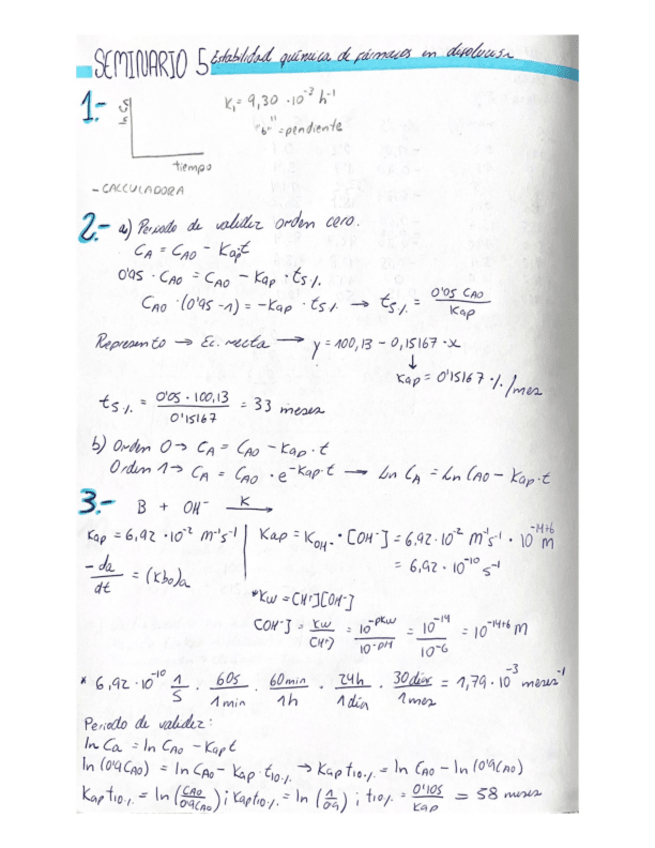 SEMINARIO 5 Estabilidad química de fármacos en disolución
1.- Ln C K₁ = 9,30 · 10⁻³ h⁻¹
"b" = pendiente
tiempo
- CALCULADORA
2.- a) Periodo de validez orden cero.
C_A = C_A0 - Kap·t
0'95 · C_A0 = C_A0 - Kap · t5%
C_A0 · (0'95 - 1) = -Kap · t5% → t5% = 0'05 C_A0 / Kap
Represento → Ec. recta → y = 100,13 - 0,15167 · x
↓
Kap = 0'15167 %/mes
t5% = 0'05 · 100,13 / 0'15167 = 33 meses
b) Orden 0 → C_A = C_A0 - Kap · t
Orden 1 → C_A = C_A0 · e^-Kap·t → Ln C_A = Ln C_A0 - Kap·t
3.- B + OH⁻ K →
Kap = 6,92 · 10⁻² M⁻¹s⁻¹ | Kap = K_OH⁻ · [OH⁻] = 6.92 · 10⁻² M⁻¹s⁻¹ · 10⁻¹⁴⁺⁶ M
= 6,92 · 10⁻¹⁰ s⁻¹
-da/dt = (Kb₀)a
*Kw = [H⁺][OH⁻]
[OH⁻] = Kw/[H⁺] = 10^-pKw / 10^-pH = 10⁻¹⁴ / 10⁻⁶ = 10⁻¹⁴⁺⁶ M
* 6,92 · 10⁻¹⁰ 1/s · 60s/1min · 60min/1h · 24h/1día · 30días/1mes = 1,79 · 10⁻³ meses⁻¹
Periodo de validez:
ln Ca = ln C_A0 - Kap t
ln (0'9 C_A0) = ln C_A0 - Kap · t10% → Kap t10% = ln C_A0 - ln (0'9 C_A0)
Kap t10% = ln (C_A0 / 0'9 C_A0) ; Kap t10% = ln (1/0'9) ; t10% = 0'105 / Kap = 58 meses